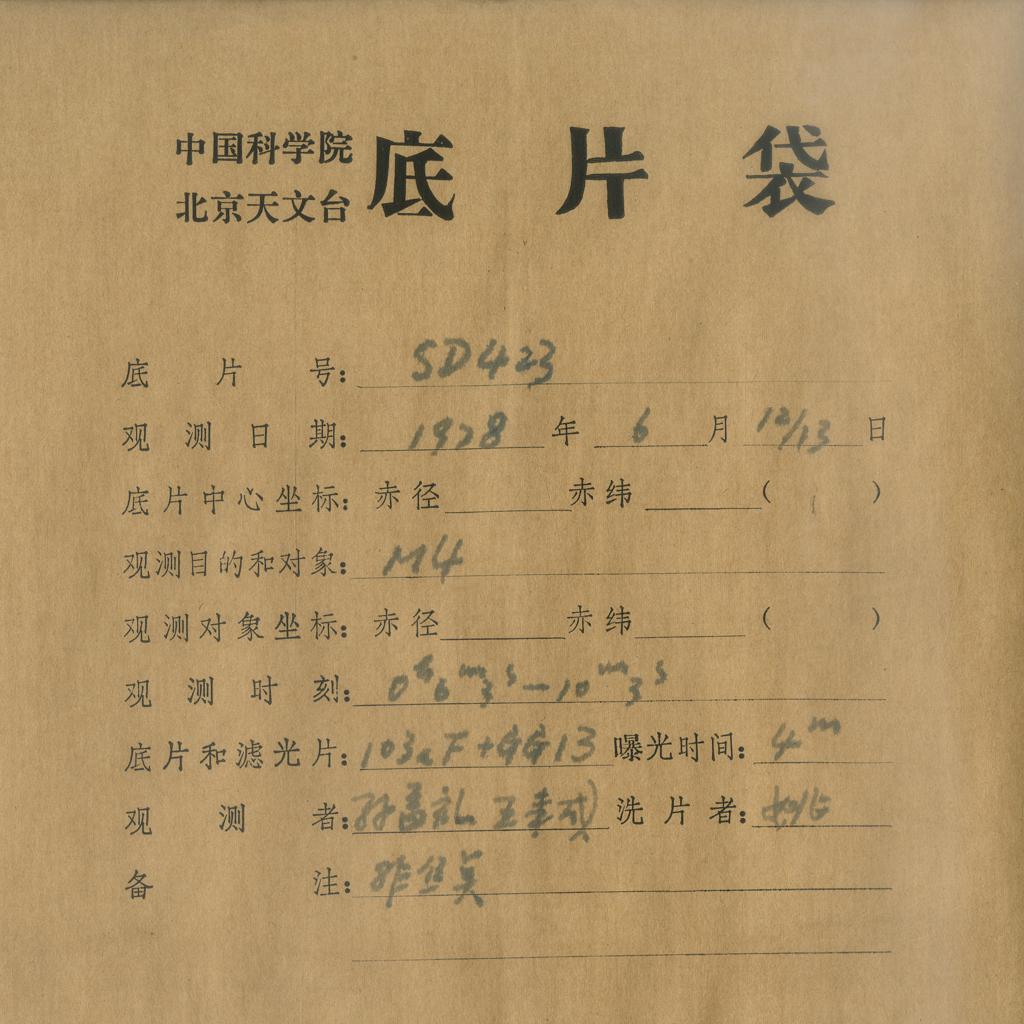 中国科学院
北京天文台
底片袋
底片号: SD423
观测日期: 1978年 6月 12/13日
底片中心坐标: 赤径 赤纬 ( )
观测目的和对象: M4
观测对象坐标: 赤径 赤纬 ( )
观测时刻: 0h6m3s—10m3s
底片和滤光片: 103aF+GG13 曝光时间: 4m
观测者: 洗片者:
备注: